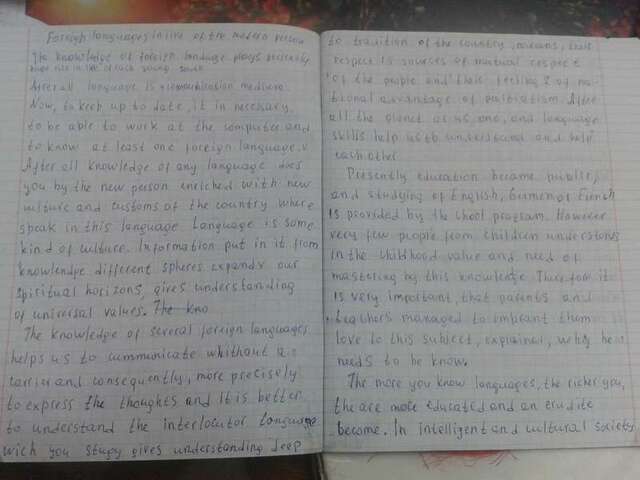 Foreign languages in live of the modern person
The knowledge of foreign landuage plays presently
huge role in live of each young
After all language is communication mediura.
Now, to keep up to date, it in necesary
to be able to work at the computer and
to know at least one foreign language.
After all knowledge of any language does
you by the new person enriched with new
culture and customs of the country where
speak in this language Language is some
kind of culture. Information put in it from
knowlendge different spheres expands our
spiritual horizons, gives understanding
of universal values. The kno
The knowledge of several foreign languages
helps us to cummunicate whithout a
carrier and consequently, more precisely
to express the thoughts and it is better
to understand the interlocutor Language
wich you study gives understanding deep
to tradition of the country, means, their
respect is sources of mutual respect
of the people and their feeling of na-
tional advantage of patriatism. After
all the planet at us one, and language
skills help us to understand and help
each other
Presently education became puplic,
and studying of English, German or French
is provided by the chool program. However
very few people from children understands
in the childhood value and need of
mastering by this knowledge Therefore it
is very important, that parents and
teachers managed to imprant them
love to this subject, explained, why he
needs to be know.
The more you know languages, the richer you,
the are more educated and an erudite
become. In intelligent and cultural society